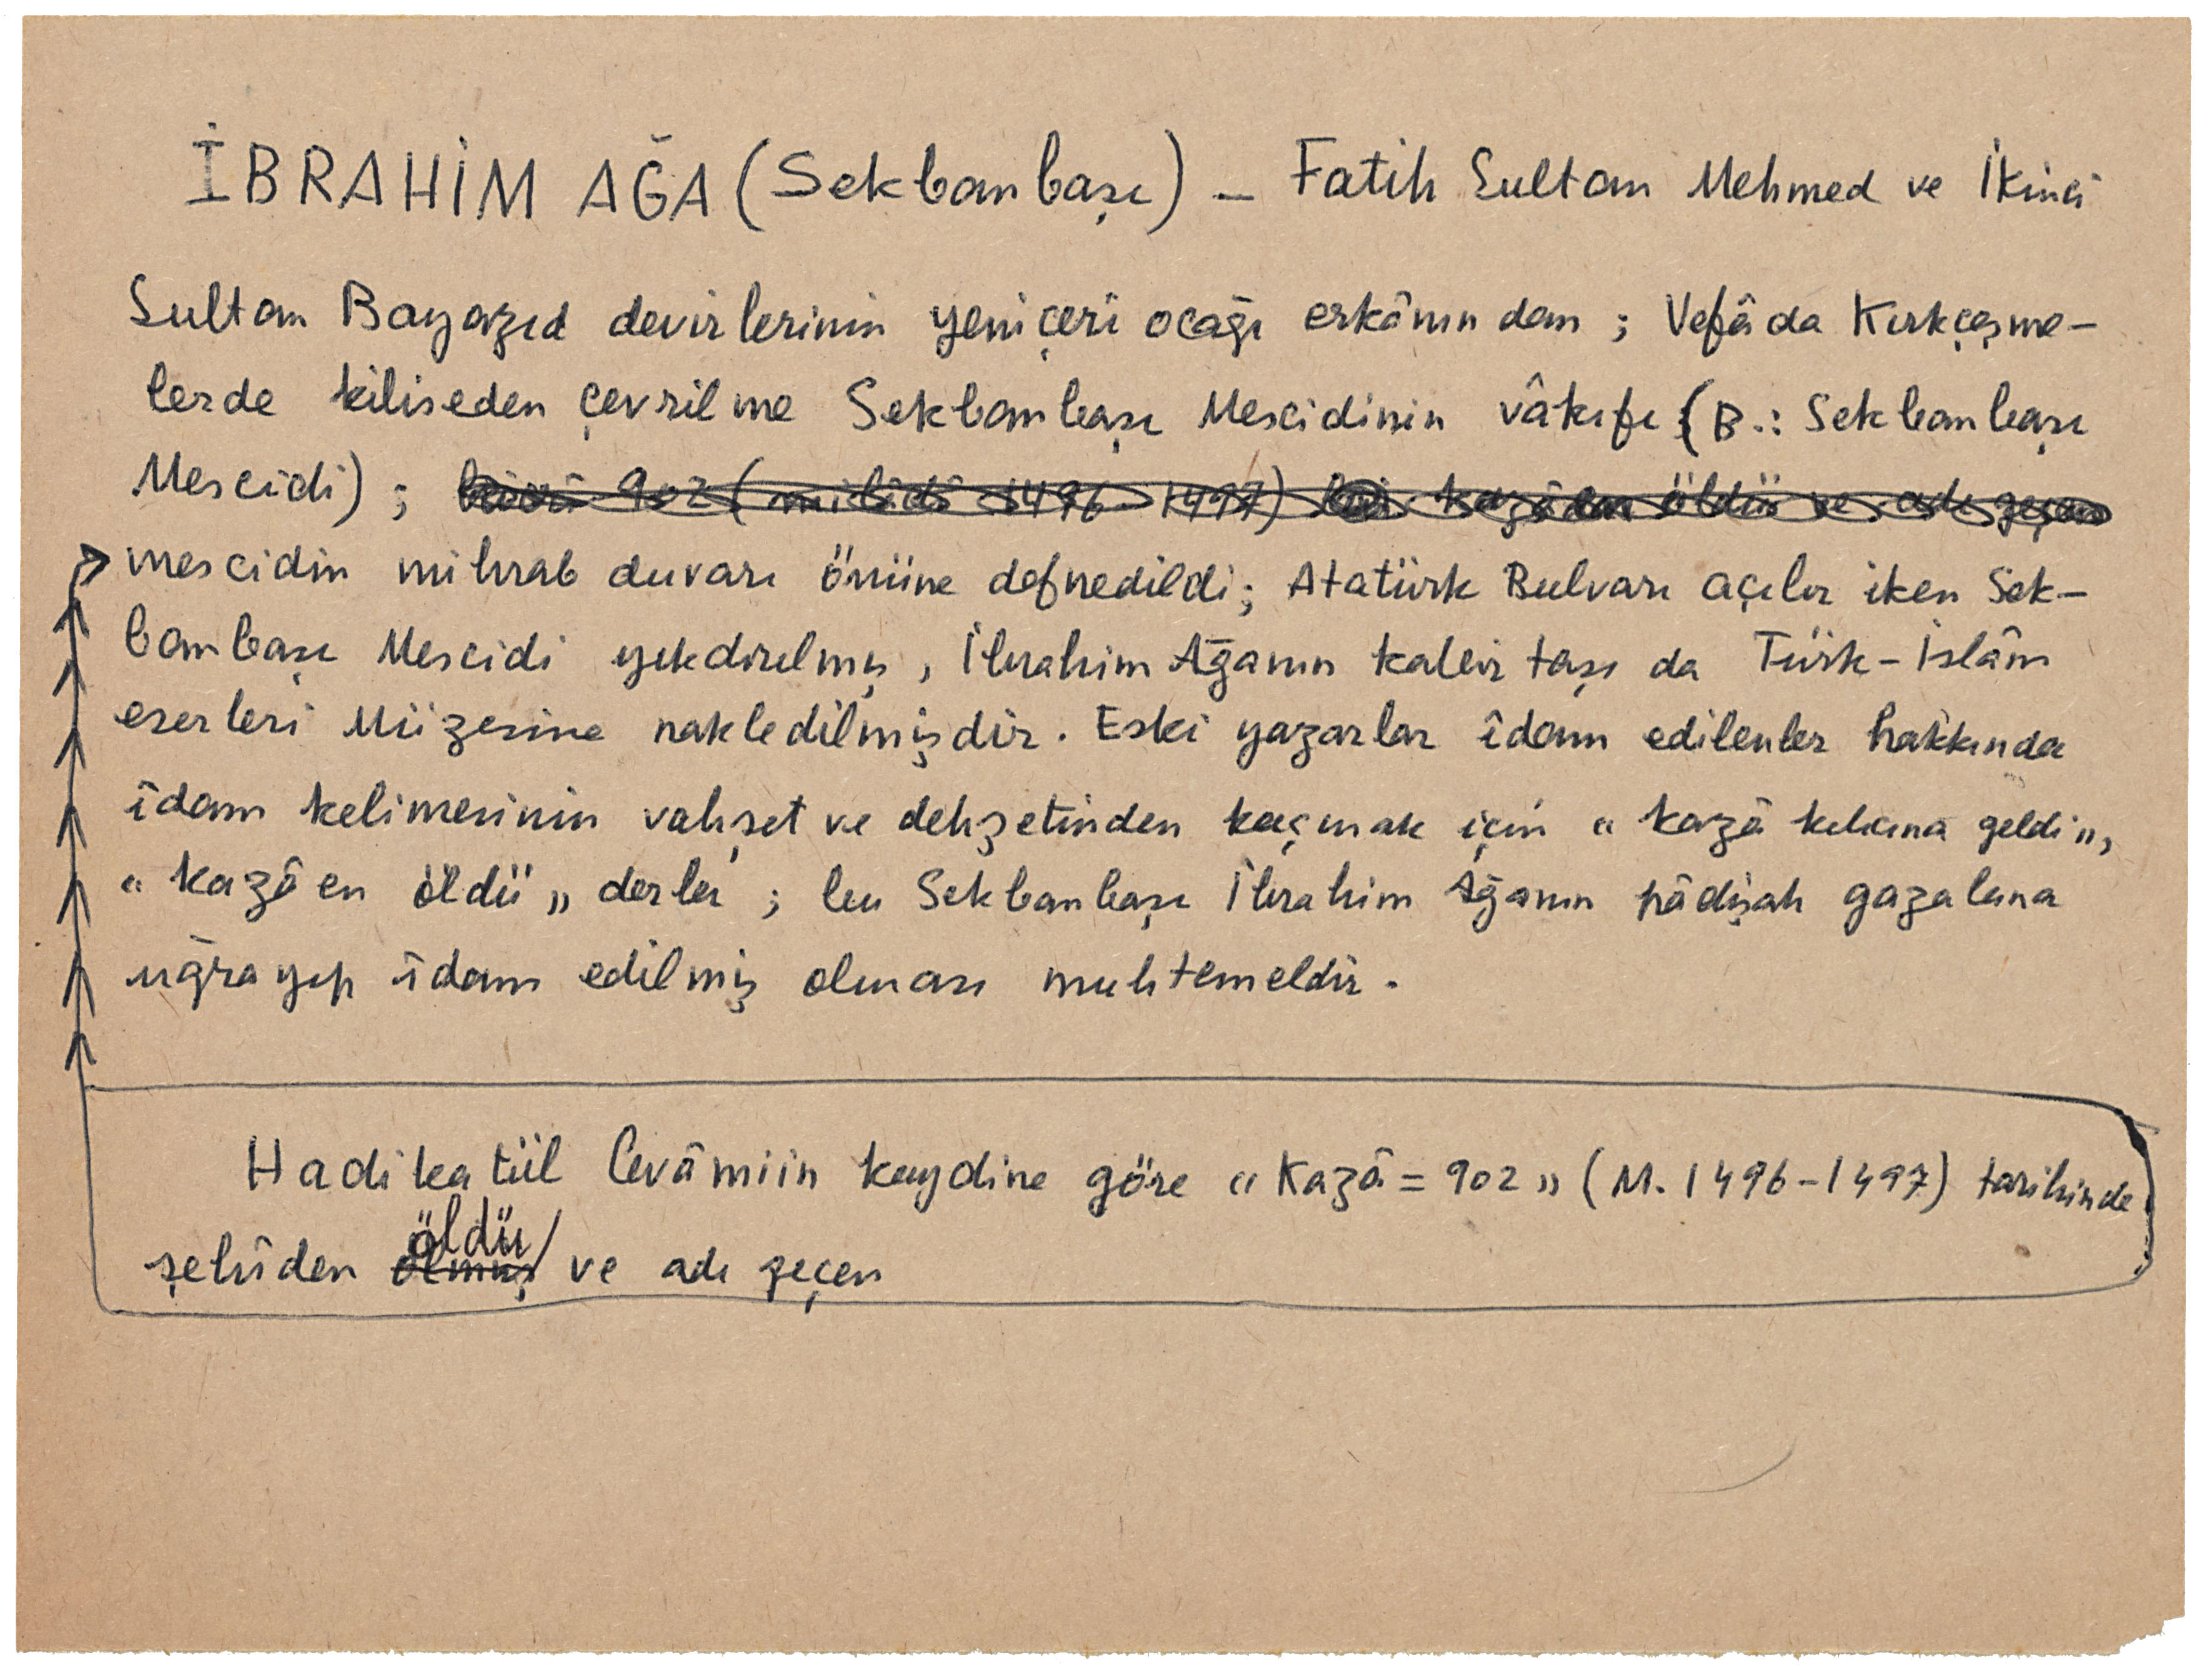 İBRAHİM AĞA (Sekbanbaşı) – Fatih Sultan Mehmed ve İkinci
Sultan Bayazıd devirlerinin yeniçeri ocağı erkânından ; Vefâda Kırkçeşme-
lerde kiliseden çevrilme Sekbanbaşı Mescidinin vâkıfı (B.: Sekbanbaşı
Mescidi) ; hicrî 902 (milâdî 1496-1497) kazâen öldü ve adı geçen
mescidin mihrab duvarı önüne defnedildi; Atatürk Bulvarı açılır iken Sek-
banbaşı Mescidi yıkdırılmış, İbrahim Ağanın kabir taşı da Türk-İslâm
eserleri Müzesine nakledilmişdir. Eski yazarlar îdam edilenler hakkında
îdam kelimesinin vahşet ve dehşetinden kaçmak için « kazâ kılıcına geldi »,
« kazâen öldü » derler ; bu Sekbanbaşı İbrahim Ağanın pâdişah gazabına
uğrayıp îdam edilmiş olması muhtemeldir.
Hadikatül Cevâmiin kaydine göre « Kazâ = 902 » (M. 1496-1497) tarihinde
öldü
şehîden ölmüş ve adı geçen